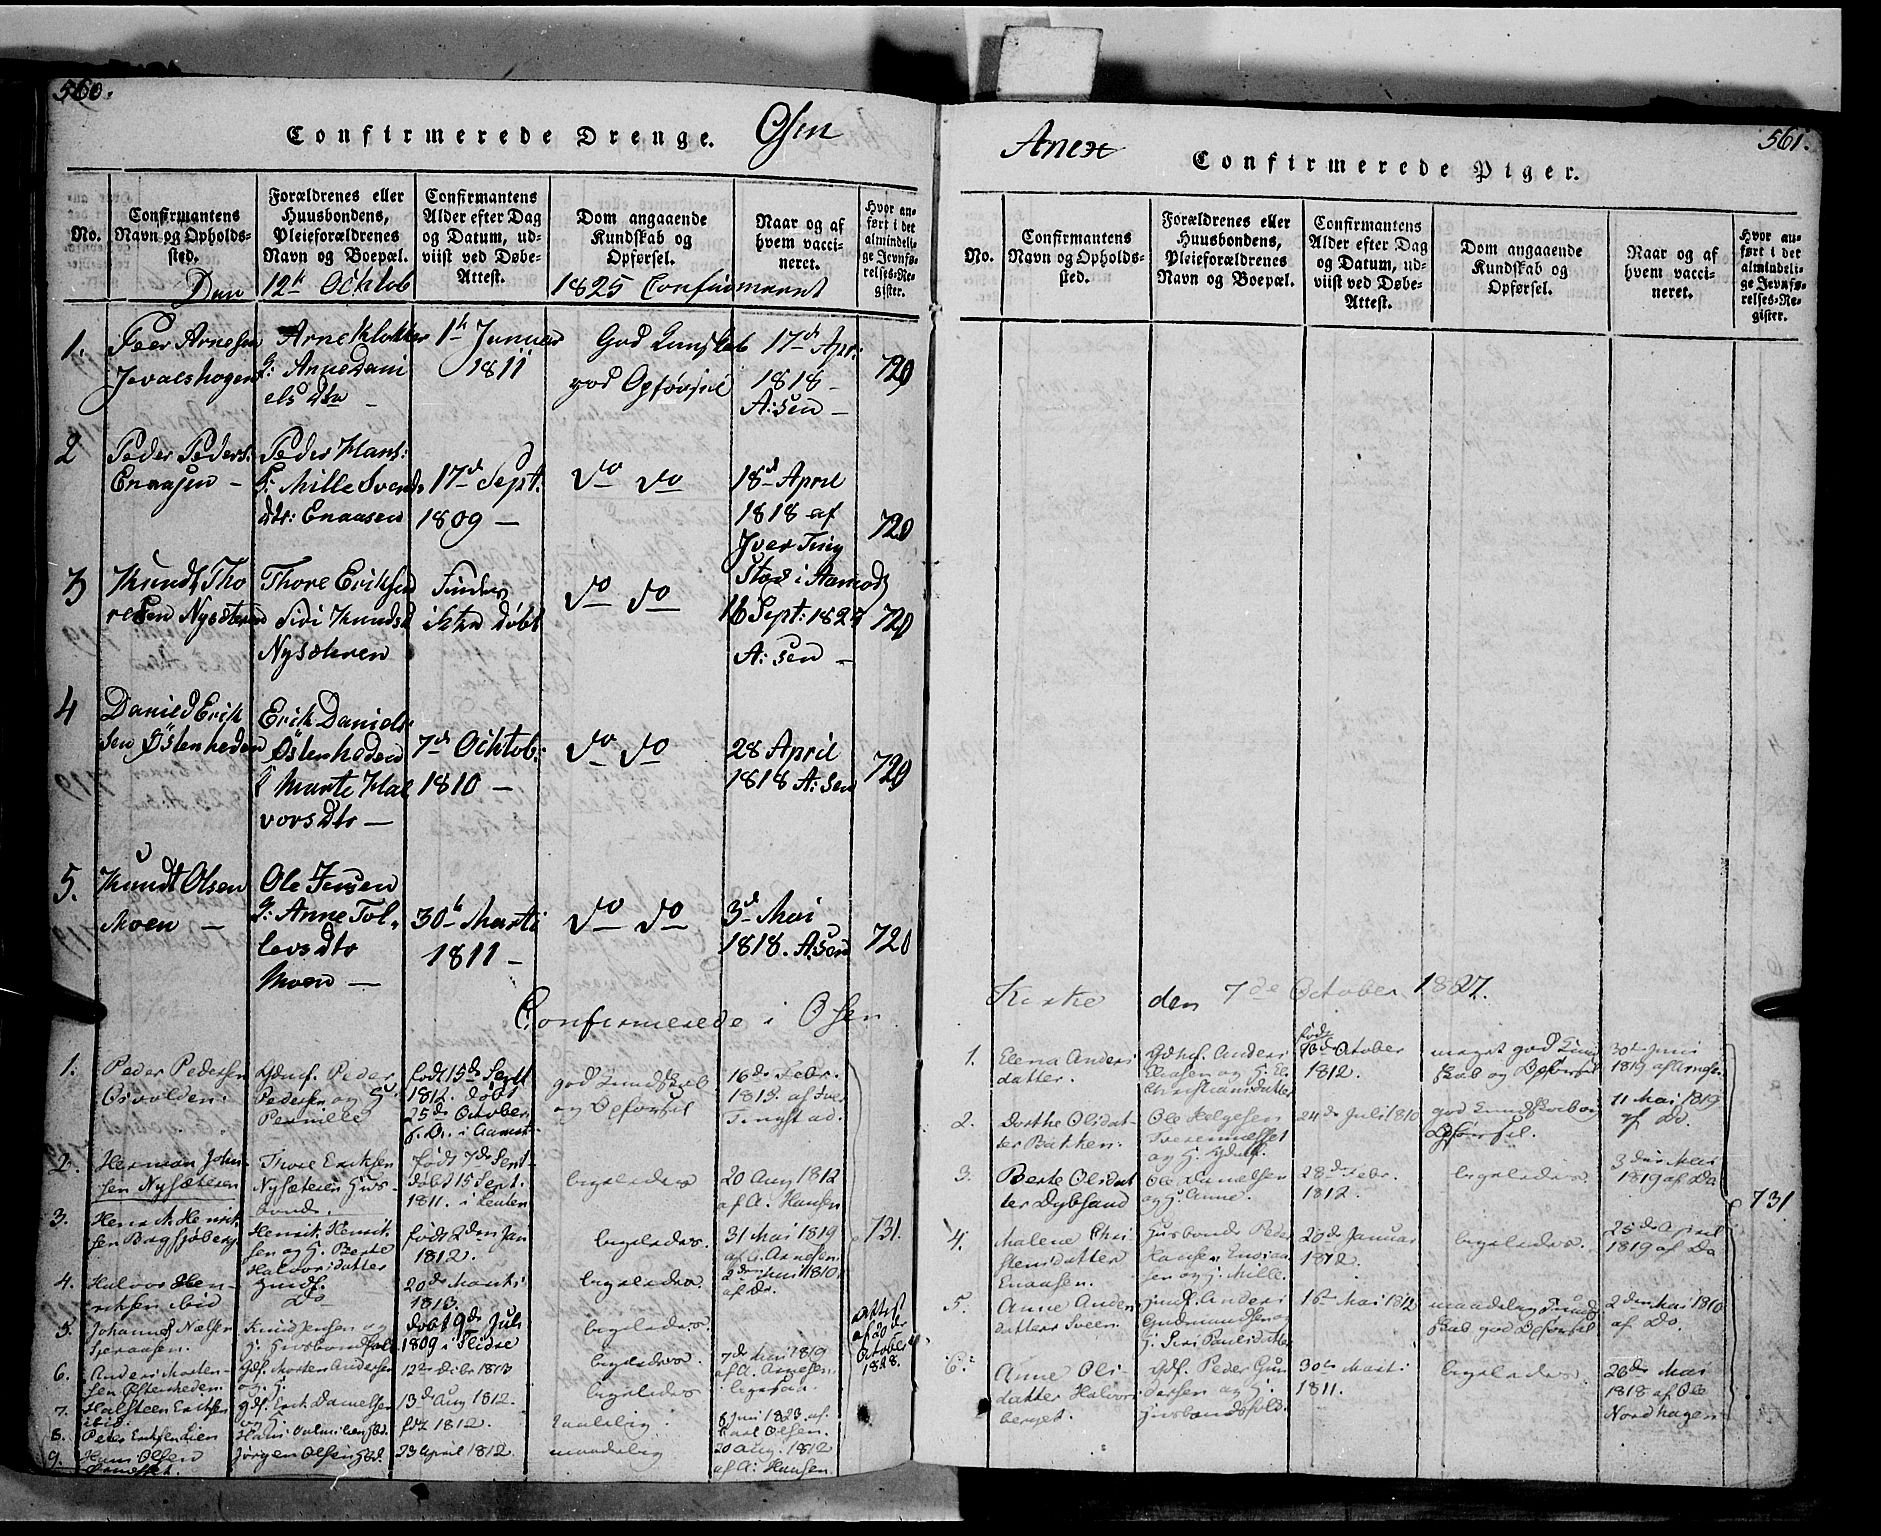 560.
Confirmerede Drenge. Osen
No.
Confirmantens
Navn og Opholds-
sted.
Forældrenes eller
Huusbondens,
Pleieforældrenes
Navn og Boepæl.
Confirmantens
Alder efter Dag
og Datum, ud-
viist ved Døbe-
Attest.
Dom angaaende
Kundskab og
Opførsel.
Naar og af
hvem vacci-
neret.
Hvor an-
ført i det
almindeli-
ge Jevnfø-
relses-Re-
gister.
Den 12te Ocktob 1825 Confirmeret
1.
Peer Arnesen
Jevalshogen
Arne Klokker
g: Anne Dani
els dtr –
1te Januar
1811
God Kunskab
god Opførsel
17de Apr:
1818 –
A: sen –
720
2
Peder Peders:
Enaasen –
Peder Hans:
g: Mille Svends
dtr: Enaasen
17de Sept.
1809 –
do do
18de April
1818 af
Iver Ting
stad i Aamod
720
3
Knudt Tho
resen Nysæteren
Thore Eriksen
Siri Knudsd
Nysæteren
do do
16 Sept: 1823
A: sen –
720
4
Daniel Erik
sen Østenheden
Erik Daniels
Østenheden
g Marte Hal
vorsdtr –
7de Ocktob:
1810 –
do do
28 April
1818 A: sen
720
5.
Knudt Olsen
Moen –
Ole Jensen
g: Anne Tol-
levsdtr
Moen –
30te Marti
1811 –
do do
3de Mai
1818. A: sen
720
Confirmerede i Osen
1.
Peder Pedersen
Osvolden.
Gdmf. Peder
Pedersen og H:
Pernille
født 15de Sept
1812. døbt
25de October
god Kundskab
og Opførsel
16de Febr.
1813. af Iver
Tingstad.
2.
Herman John-
sen Nysæteren
Thore Eriksen
Nysæteren Huus-
bonde.
født 7de Sept-
døbt 15 Sept.
1811. i Leuten
ligeledes
20 Aug 1812
af A. Hansen
3.
Henrik Henrik-
sen Bagsjøberg
Henrik Henrik
sen og H. Berte
Halvorsdatter
født 2den Jan
1812.
ligeledes.
31 Mai 1819
af A. Arnesen
731.
4.
Halvor Hen-
riksen ibid
Do
20de Marti
1813.
ligeledes
af Do.
5.
Johannes Nielsen
Knud Jensen og
døbt 9de Juli
1809 i Slidre
ligeledes.
Attest
af 20de
October
1828.
6.
Anders Morten-
sen Østenheden
Gdf. Morten Andersen
og H
12te Debr 1813
ligeledes
7de Juni 1819
af A. Arnesen
7.
Halsteen Eriksen
ibid.
Gdf. Erik Danielsen
og H
13de Aug 1812.
ligeledes
ligesaa.
8.
Peder Eriksen Lien
født 1812.
taalelig
8 Juni 1823 af
Carl Olsen.
9.
Hans Olsen
Jørgen Olsen
23 April 1812
maadelig
20 Aug. 1812
af A. Hansen.
561.
Anex Confirmerede Piger.
No.
Confirmantens
Navn og Opholds-
sted.
Forældrenes eller
Huusbondens,
Pleieforældrenes
Navn og Boepæl.
Confirmantens
Alder efter Dag
og Datum, ud-
viist ved Døbe-
Attest.
Dom angaaende
Kundskab og
Opførsel.
Naar og af
hvem vacci-
neret.
Hvor an-
ført i det
almindeli-
ge Jevnfø-
relses-Re-
gister.
Kirke den 7de October 1827.
1.
Elena Anders
datter.
Gdmf. Anders
Eliasen og H. El.
Christiansdatter
født
October
1812.
meget god Kund
skab og Opførsel
30te Juni
1819 af Arnesen
2.
Dorthe Olsdat-
ter Bakken.
Ole Helgesen
24de Juli 1810
god Kundskab og
Opførsel.
11 Mai 1819
af Do.
3.
Berte Olsdat
ter Dybsand
Ole Danielsen
og H. Anne.
28de Febr.
1812.
ligeledes.
3die Mai
1819 af Do
4.
Malene Chri-
stensdatter
Enaasen.
Huusbonde Peder
Hansen Enaa
sen og H. Mille.
20de Januar
1812.
ligeledes
25de April
1819 af Do
5.
Anne Anders
datter Sveen.
Gdmf. Anders
Gudmundsen og
H. Siri Paulsdatter
16te Mai 1812
maadelig Kund
skab god Opførsel
2den Mai 1810
af Do.
6.
Anne Ols
datter Halvor
berget.
Gdf. Peder Gun
dersen og H.
Huusbondsfolk.
30te Marti
1811.
ligeledes.
26de Mai
1818 af Ole
Nordhagen
731